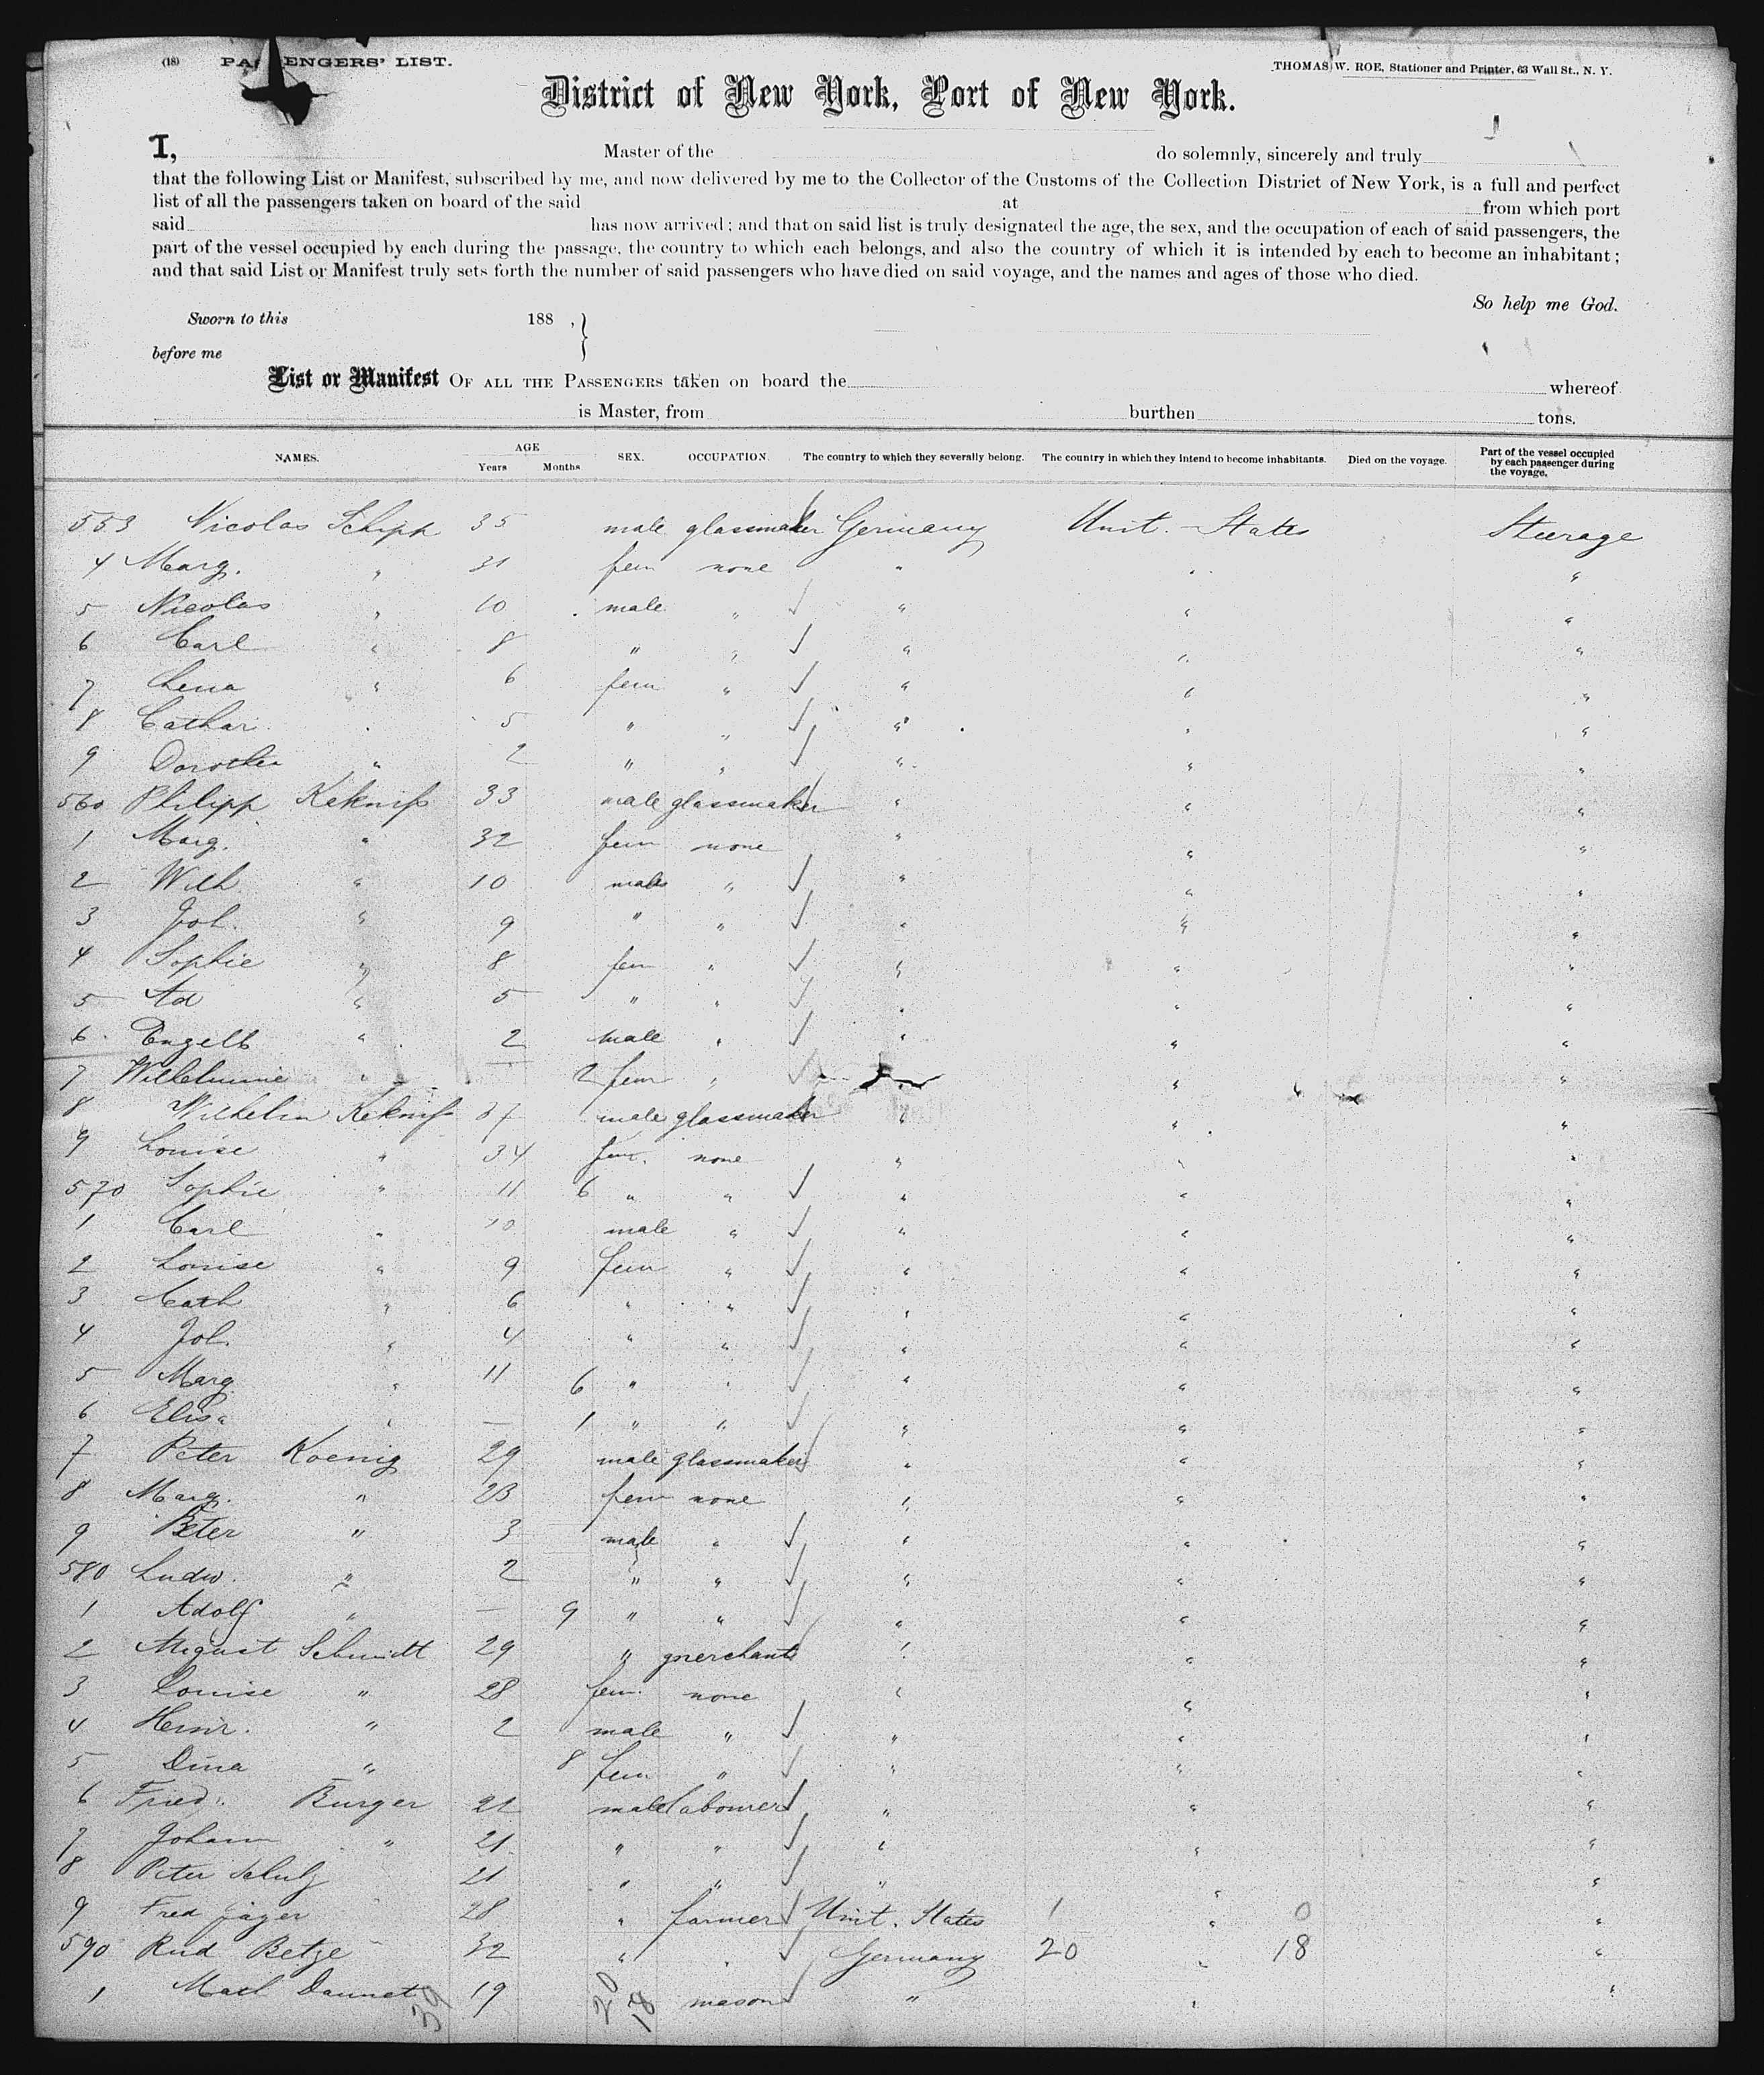 (18) PASSENGERS' LIST.
THOMAS W. ROE, Stationer and Printer, 63 Wall St., N. Y.
District of New York, Port of New York.
I, Master of the do solemnly, sincerely and truly
that the following List or Manifest, subscribed by me, and now delivered by me to the Collector of the Customs of the Collection District of New York, is a full and perfect
list of all the passengers taken on board of the said at from which port
said has now arrived; and that on said list is truly designated the age, the sex, and the occupation of each of said passengers, the
part of the vessel occupied by each during the passage, the country to which each belongs, and also the country of which it is intended by each to become an inhabitant;
and that said List or Manifest truly sets forth the number of said passengers who have died on said voyage, and the names and ages of those who died.
So help me God.
Sworn to this 188 , }
before me
List or Manifest OF ALL THE PASSENGERS taken on board the whereof
is Master, from burthen tons.
NAMES. AGE Years Months SEX. OCCUPATION. The country to which they severally belong. The country in which they intend to become inhabitants. Died on the voyage. Part of the vessel occupied by each passenger during the voyage.
553 Nicolas Schipp 35 male glassmaker Germany Unit. States Steerage
4 Marg. " 31 fem none " " "
5 Nicolas " 10 male " " " "
6 Carl " 8 " " " " "
7 Lena " 6 fem " " " "
8 Cathar. " 5 " " " " "
9 Dorothea " 2 " " " " "
560 Philipp Kekniss 33 male glassmaker " " "
1 Marg. " 32 fem none " " "
2 Wilh. " 10 male " " " "
3 Joh. " 9 " " " " "
4 Sophie " 8 fem " " " "
5 Ad " 5 " " " " "
6 Engelb " 2 male " " " "
7 Wilhelmine " — 2 fem " " "
8 Wilhelm Kekniss 37 male glassmaker " " "
9 Louise " 34 fem. none " " "
570 Sophie " 11 6 " " " " "
1 Carl " 10 male " " " "
2 Louise " 9 fem " " " "
3 Cath " 6 " " " " "
4 Joh. " 4 " " " " "
5 Marg " 11 6 " " " " "
6 Elisa " — 1 " " " " "
7 Peter Koenig 29 male glassmaker " " "
8 Marg. " 23 fem none " " "
9 Peter " 3 male " " " "
580 Ludw. " 2 " " " " "
1 Adolf " — 9 " " " " "
2 August Schmidt 29 " merchant " " "
3 Louise " 28 fem. none " " "
4 Heinr. " 2 male " " " "
5 Dina " 8 fem " " " "
6 Fried. Burger 21 male labourer " " "
7 Johann " 21 " " " " "
8 Peter Schulz 21 " " " " "
9 Fred Jäger 28 " farmer Unit. States 1 " 0 "
590 Rud Betze 32 " " Germany 20 " 18 "
1 Math Dannet 19 mason " " "
39 20 18